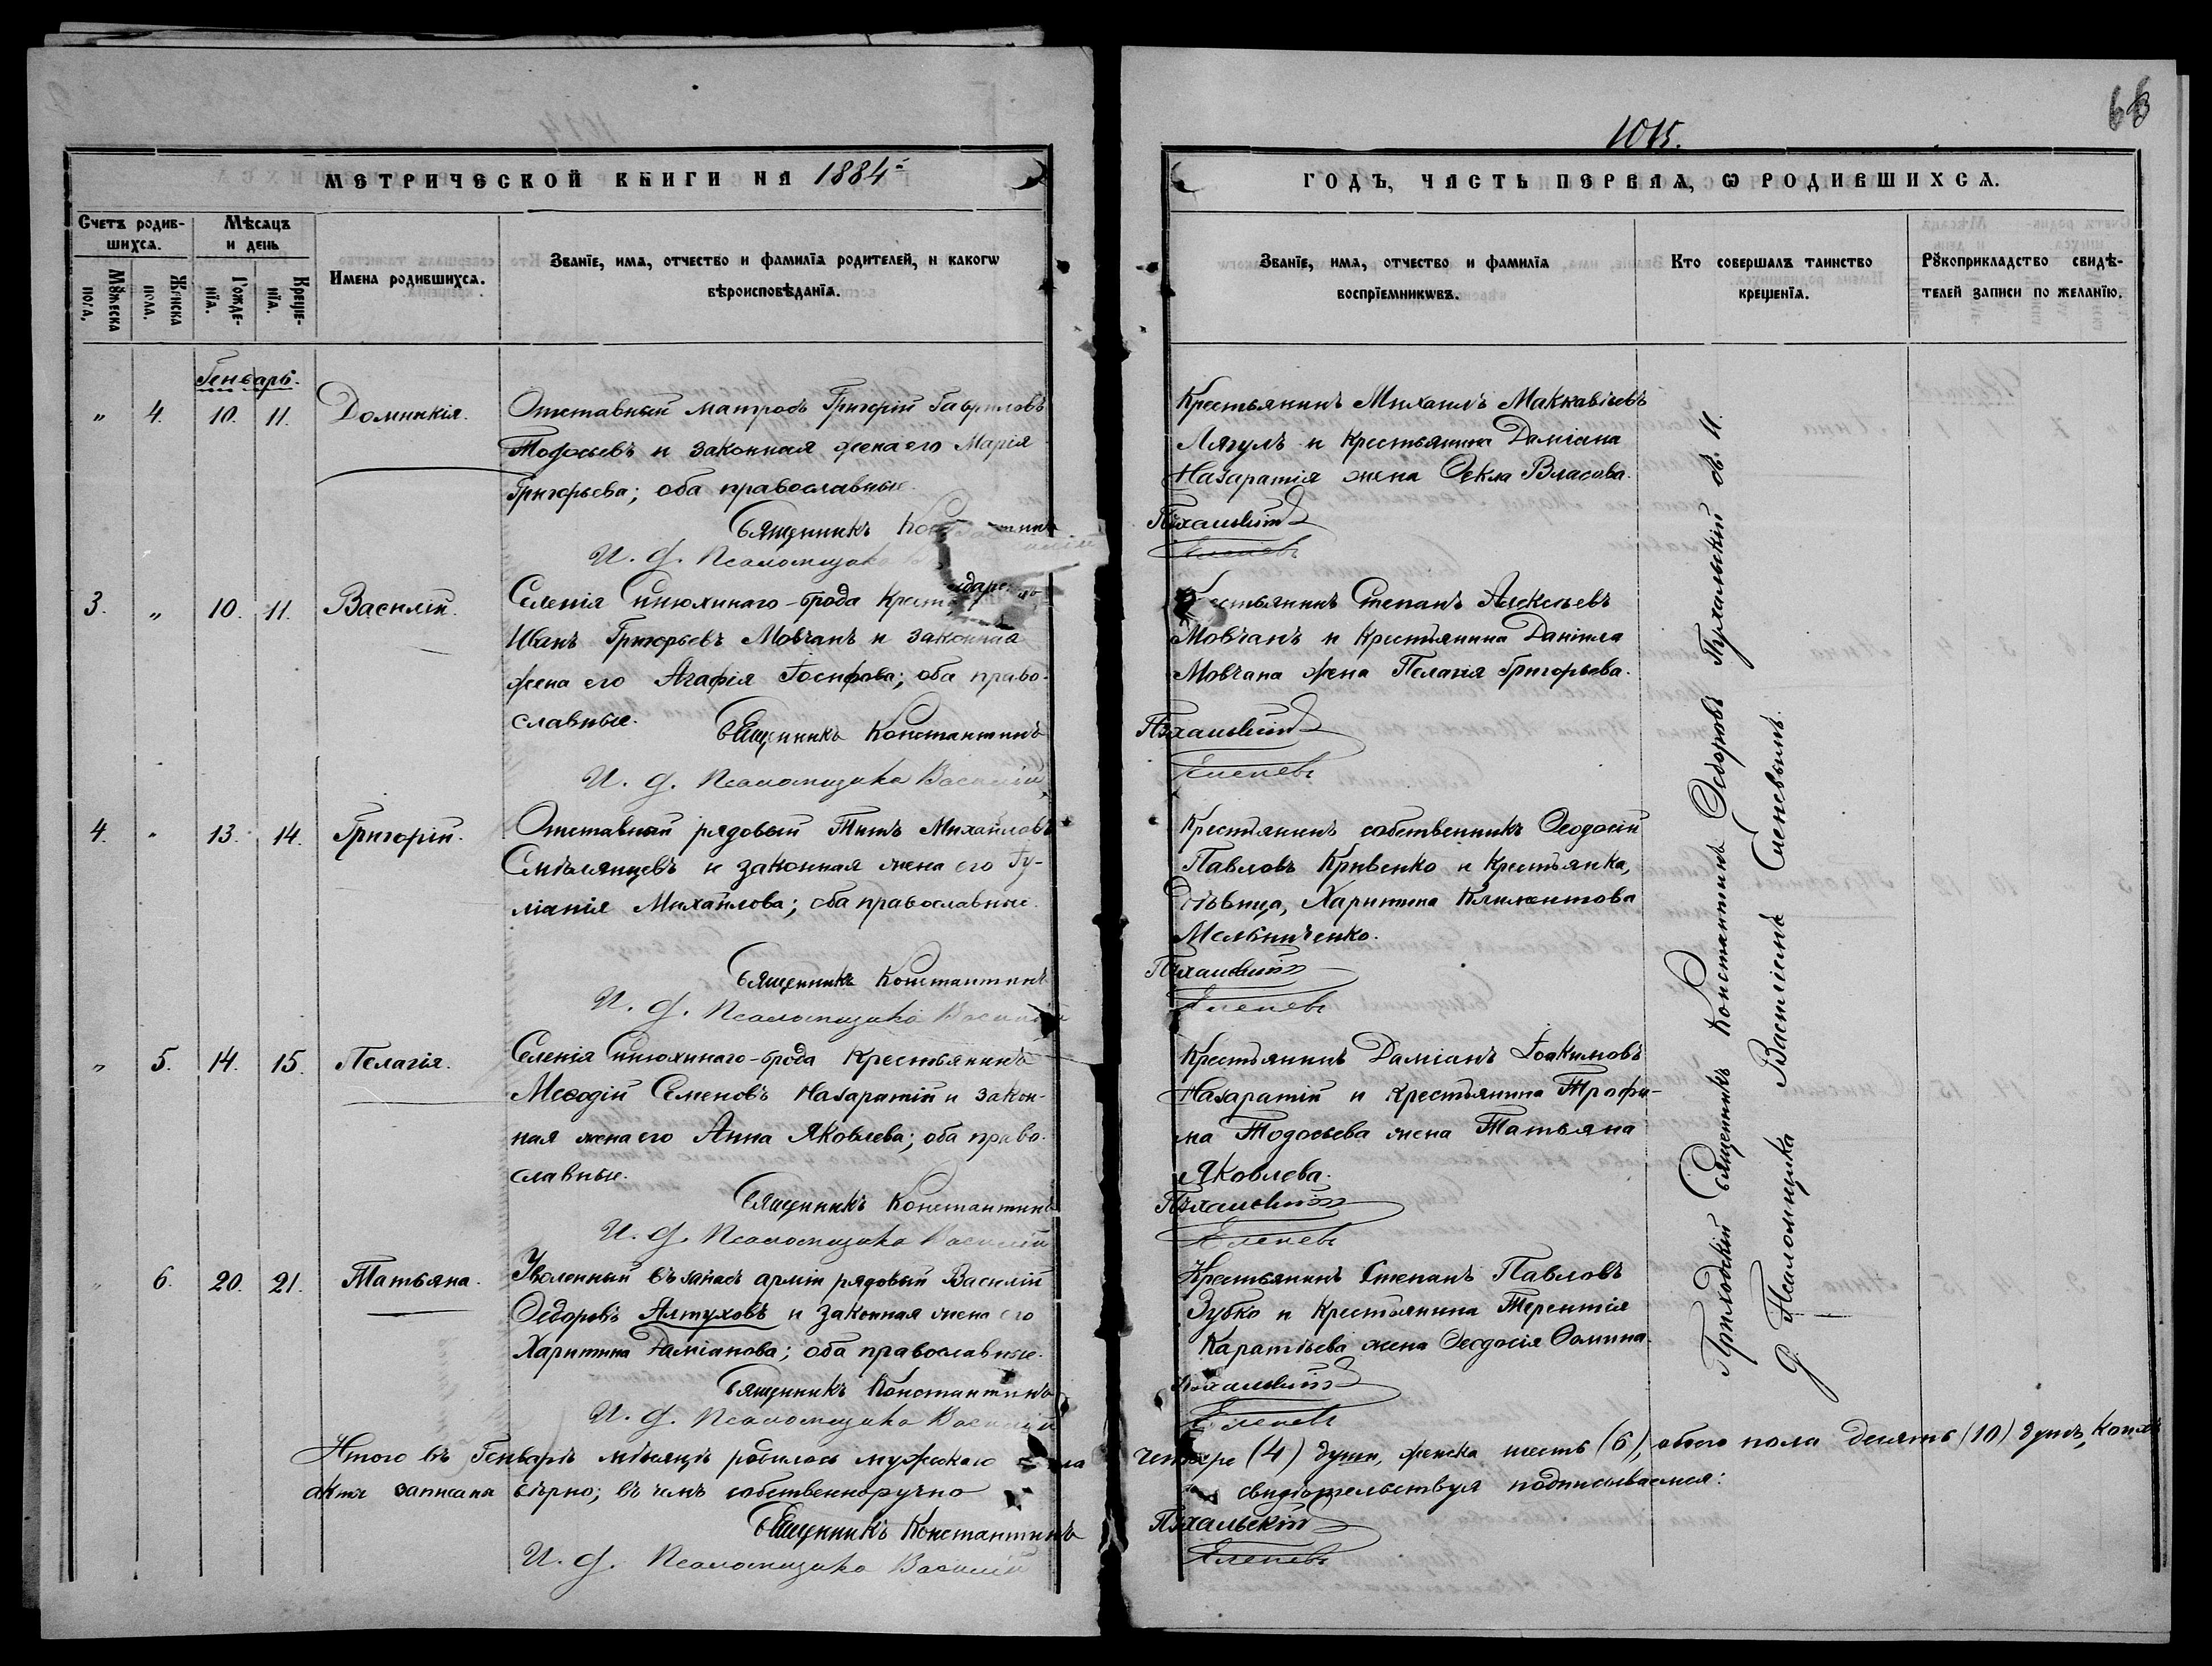 1015.
66
МЕТРИЧЕСКОЙ КНИГИ НА 1884й
ГОДЪ, ЧАСТЬ ПЕРВАЯ, Ѡ РОДИВШИХСѦ.
Счетъ родив-
шихсѧ.
Мѣсяцъ
и день
Мꙋжеска
пола.
Женска
пола.
Рожде-
нїѧ.
Креще-
нїѧ.
Имена родившихсѧ.
Званїе, имѧ, отчество и фамилїѧ родителей, и какогѡ
вѣроисповѣданїѧ.
Званїе, имѧ, отчество и фамилїѧ
воспрїемникѡвъ.
Кто совершалъ таинство
крещенїѧ.
Рꙋкоприкладство свидѣ-
телей записи по желанїю.
Генварь.
" 4. 10. 11. Домникія.
Отставный матросъ Григорій Гавриловъ
Тодосьевъ и законная жена его Марія
Григорьева; оба православные.
Священникъ
И. д. Псаломщика
Крестьянинъ Михаилъ Маккавіевъ
Лягулъ и крестьянина Даміана
Назаратія жена Ѳекла Власова.
Пухальскій
Слепевъ
3. " 10. 11. Василій.
Селенія Синюхинаго-брода
Иванъ Григорьевъ Мовчанъ и законная
жена его Агафія Іосифова; оба право-
славные.
Священникъ Константинъ
И. д. Псаломщика Василій
Крестьянинъ Степанъ Алексѣевъ
Мовчанъ и крестьянина Даніила
Мовчана жена Пелагія Григорьева.
Пухальскій
Слепевъ
4. " 13. 14. Григорій.
Отставный рядовый Титъ Михайловъ
Смѣлянцевъ и законная жена его Іу-
ліанія Михайлова; оба православные.
Священникъ Константинъ
И. д. Псаломщика Василій
Крестьянинъ собственникъ Ѳеодосій
Павловъ Кривенко и крестьянка,
дѣвица, Харитина Климентова
Мельниченко.
Пухальскій
Слепевъ
" 5. 14. 15. Пелагія.
Селенія Синюхинаго-брода крестьянинъ
Меѳодій Семеновъ Назаратій и закон-
ная жена его Анна Яковлева; оба право-
славные.
Священникъ Константинъ
И. д. Псаломщика Василій
Крестьянинъ Даміанъ Іоакимовъ
Назаратій и крестьянина Трофи-
ма Тодосьева жена Татьяна
Яковлева.
Пухальскій
Слепевъ
" 6. 20. 21. Татьяна.
Уволенный въ запасъ арміи рядовый Василій
Ѳедоровъ Алтуховъ и законная жена его
Харитина Даміанова; оба православные.
Священникъ Константинъ
И. д. Псаломщика Василій
Крестьянинъ Степанъ Павловъ
Зубко и крестьянина Терентія
Каратѣева жена Ѳеодосія Ѳомина.
Пухальскій
Слепевъ
Приходскій Священникъ Константинъ Ѳедоровъ Пухальскій съ И.
д. Псаломщика Василіемъ Слепевымъ.
Итого въ Генварѣ мѣсяцѣ родилось мужскаго пола четыре (4) души, женска шесть (6), обоего пола десять (10) душъ, коихъ
акты записаны вѣрно; въ чемъ собственноручно свидѣтельствуя подписываемся:
Священникъ Константинъ Пухальскій
И. д. Псаломщика Василій Слепевъ